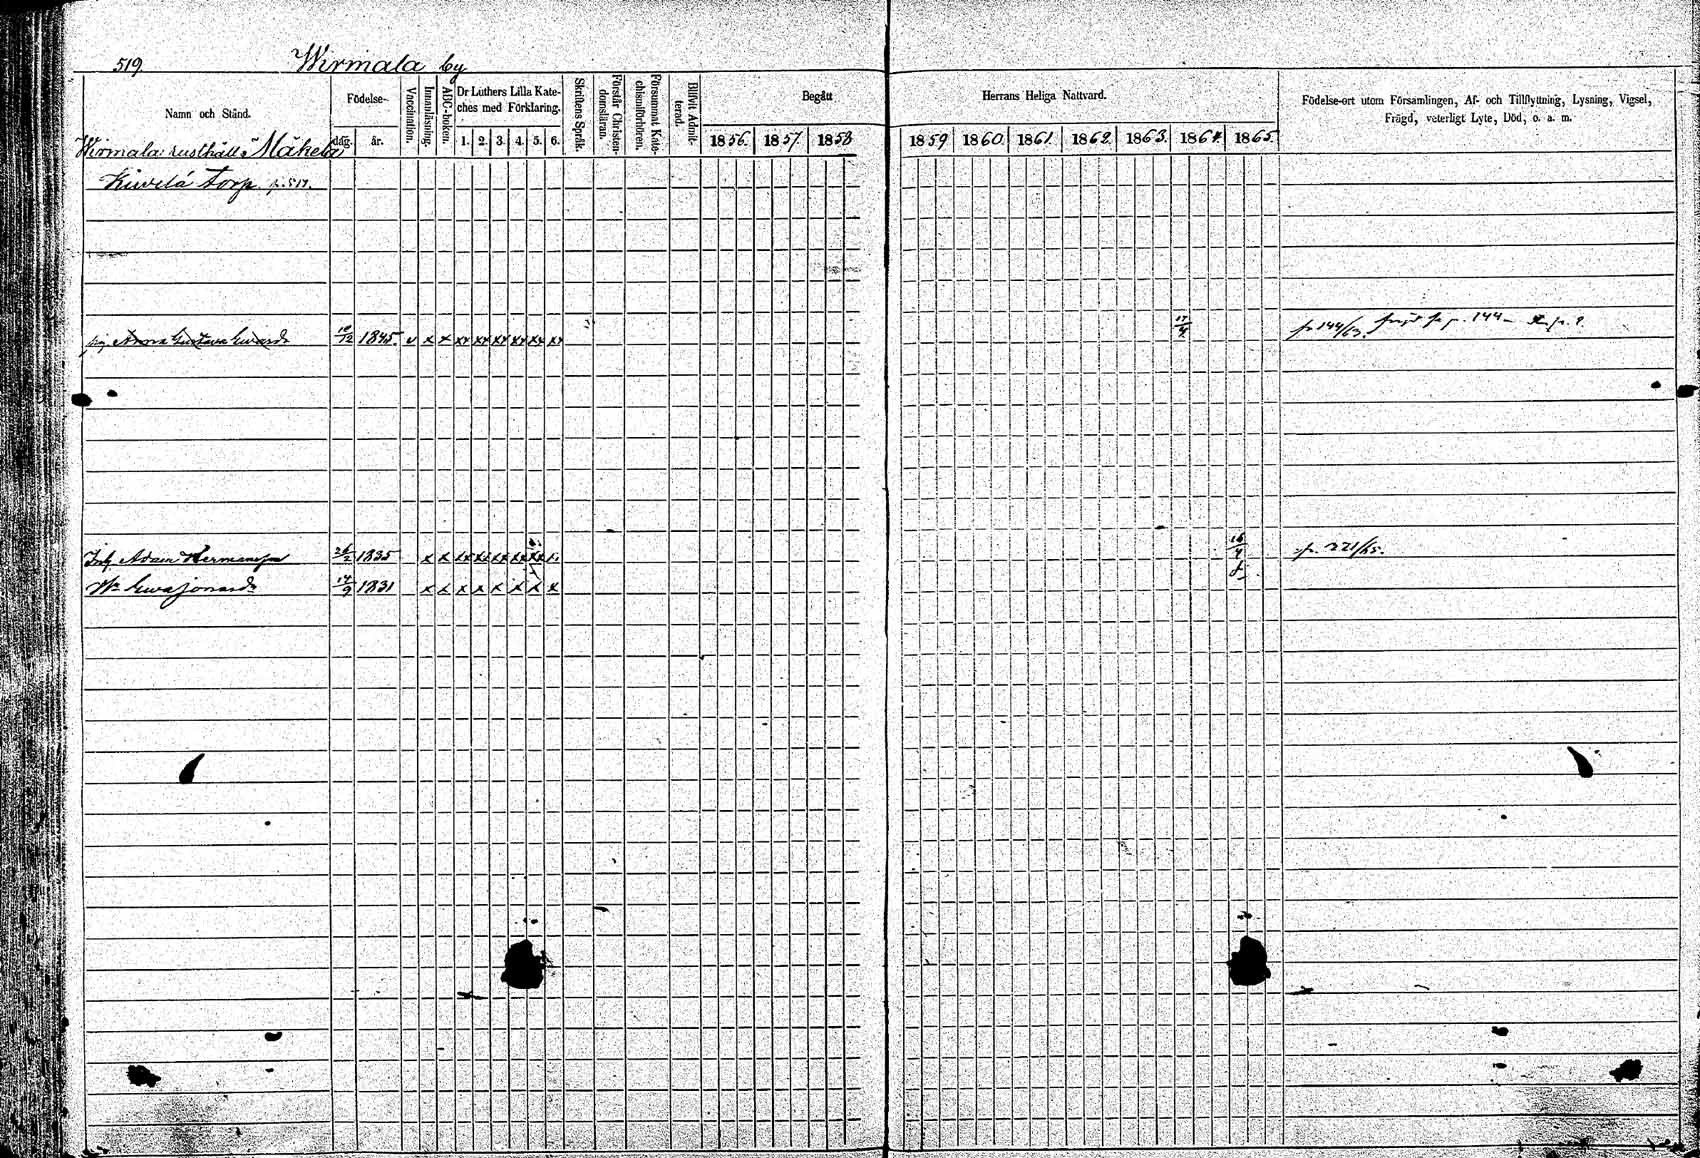 519. Wirmala by
Namn och Stånd.
Födelse-
dag. år.
Vaccination.
Innanläsning.
ABC-boken.
Dr Luthers Lilla Kate-
ches med Förklaring.
1. 2. 3. 4. 5. 6.
Skriftens Språk.
Förstår Christen-
domsläran.
Försummat Kate-
chismiförhören.
Blifvit Admit-
terad.
Begått
1856. 1857. 1858
Herrans Heliga Nattvard.
1859 1860. 1861. 1862. 1863. 1864. 1865.
Födelse-ort utom Församlingen, Af- och Tillflyttning, Lysning, Vigsel,
Frägd, veterligt Lyte, Död, o. a. m.
Wirmala rusthåll Mäkelä
Kiwelä torp p. 519.
pig. Anna Gustava Ewardr 10/12 1845. v x x xx xx xx xx xx xx 17/4 fr 144/63. p. 144
Adam Hermansson 26/2 1835 x x xx xx xx xx xx 16/4 fr. 221/65.
Hu Ewa Jonasdr 14/9 1831 x x x x x x x x